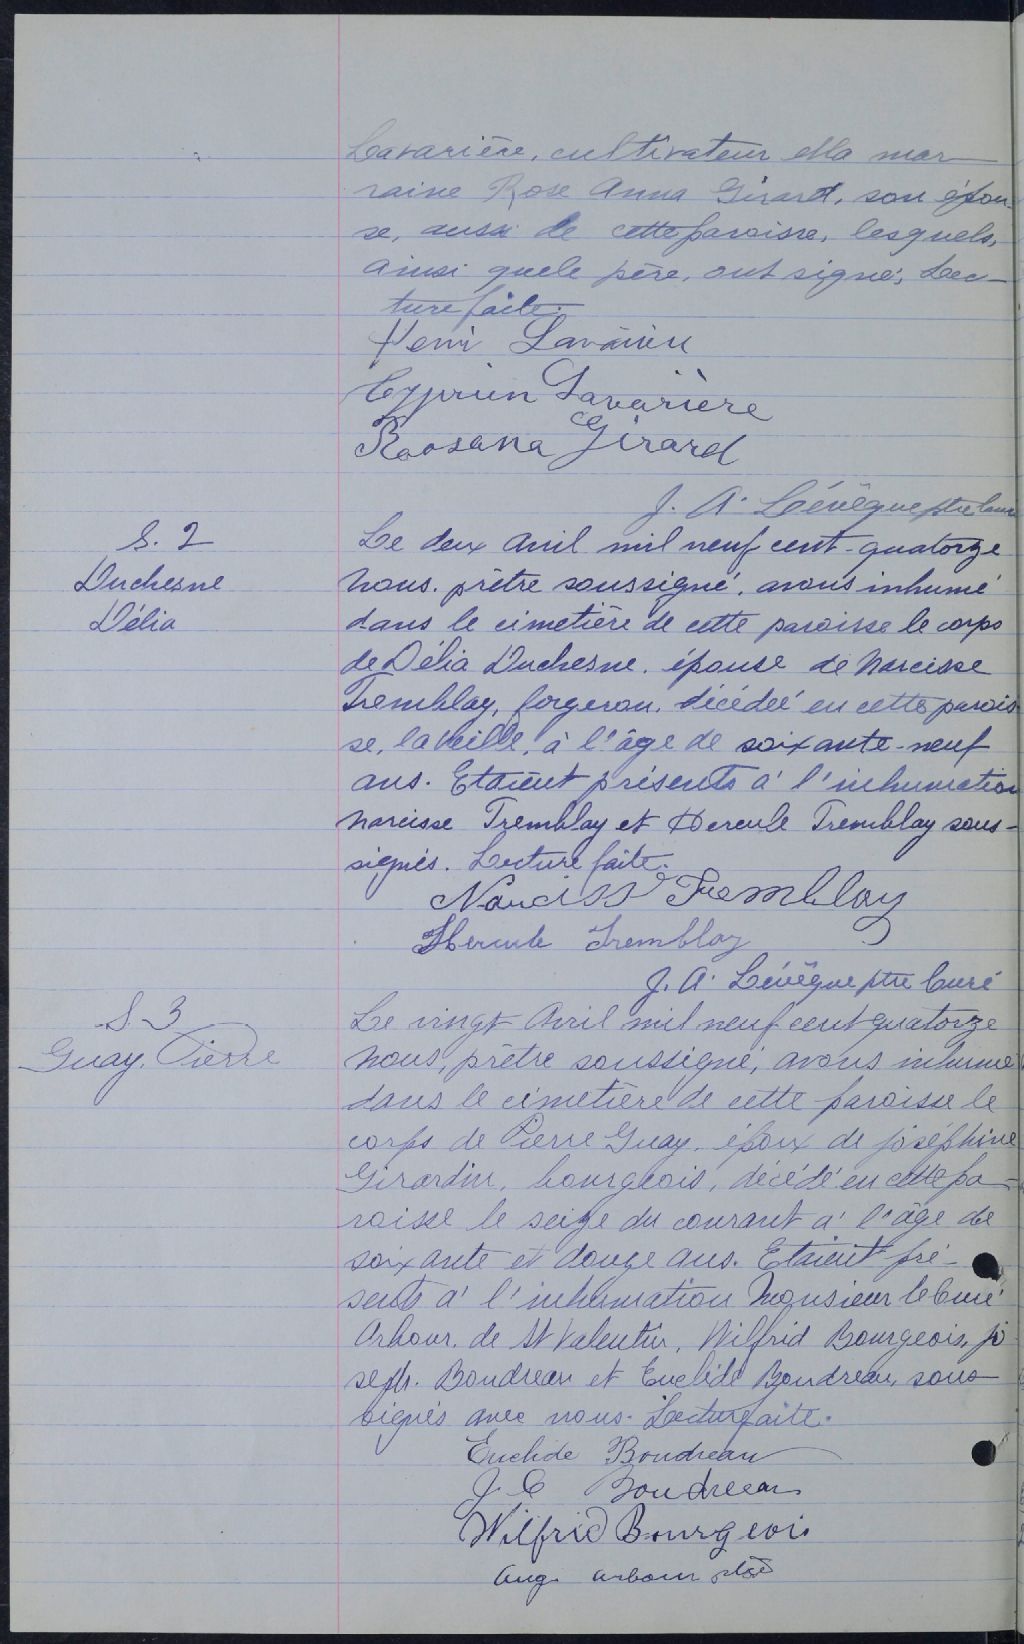 Lavarière, cultivateur et la mar-
raine Rose Anna Girard, son épou-
se, aussi de cette paroisse, lesquels,
ainsi que le père, ont signé; Lec-
ture faite.
Henri Lavarière
Cyprien Lavarière
Roosana Girard
J. A. Lévêque ptre Curé
S. 2
Duchesne
Délia
Le deux Avril mil neuf cent-quatorze
Nous, prêtre soussigné, avons inhumé
dans le cimetière de cette paroisse le corps
de Délia Duchesne, épouse de Narcisse
Tremblay, forgeron, décédée en cette parois-
se, la veille, à l'âge de soixante-neuf
ans. Etaient présents à l'inhumation
Narcisse Tremblay et Hercule Tremblay sous-
signés. Lecture faite.
Narcisse Tremblay
Hercule Tremblay
J. A. Lévêque ptre Curé
S. 3
Guay, Pierre
Le vingt Avril mil neuf cent quatorze
Nous, prêtre soussigné, avons inhumé
dans le cimetière de cette paroisse le
corps de Pierre Guay, époux de Joséphine
Girardin, bourgeois, décédé en cette pa-
roisse le seize du courant à l'âge de
soixante et douze ans. Etaient pré-
sents à l'inhumation Monsieur le Curé
Arbour, de St Valentin, Wilfrid Bourgeois, Jo
seph. Boudreau et Euclide Boudreau, sous-
signés avec nous. Lecture faite.
Euclide Boudreau
J. E Boudreau
Wilfrid Bourgeois
Aug. Arbour ptre